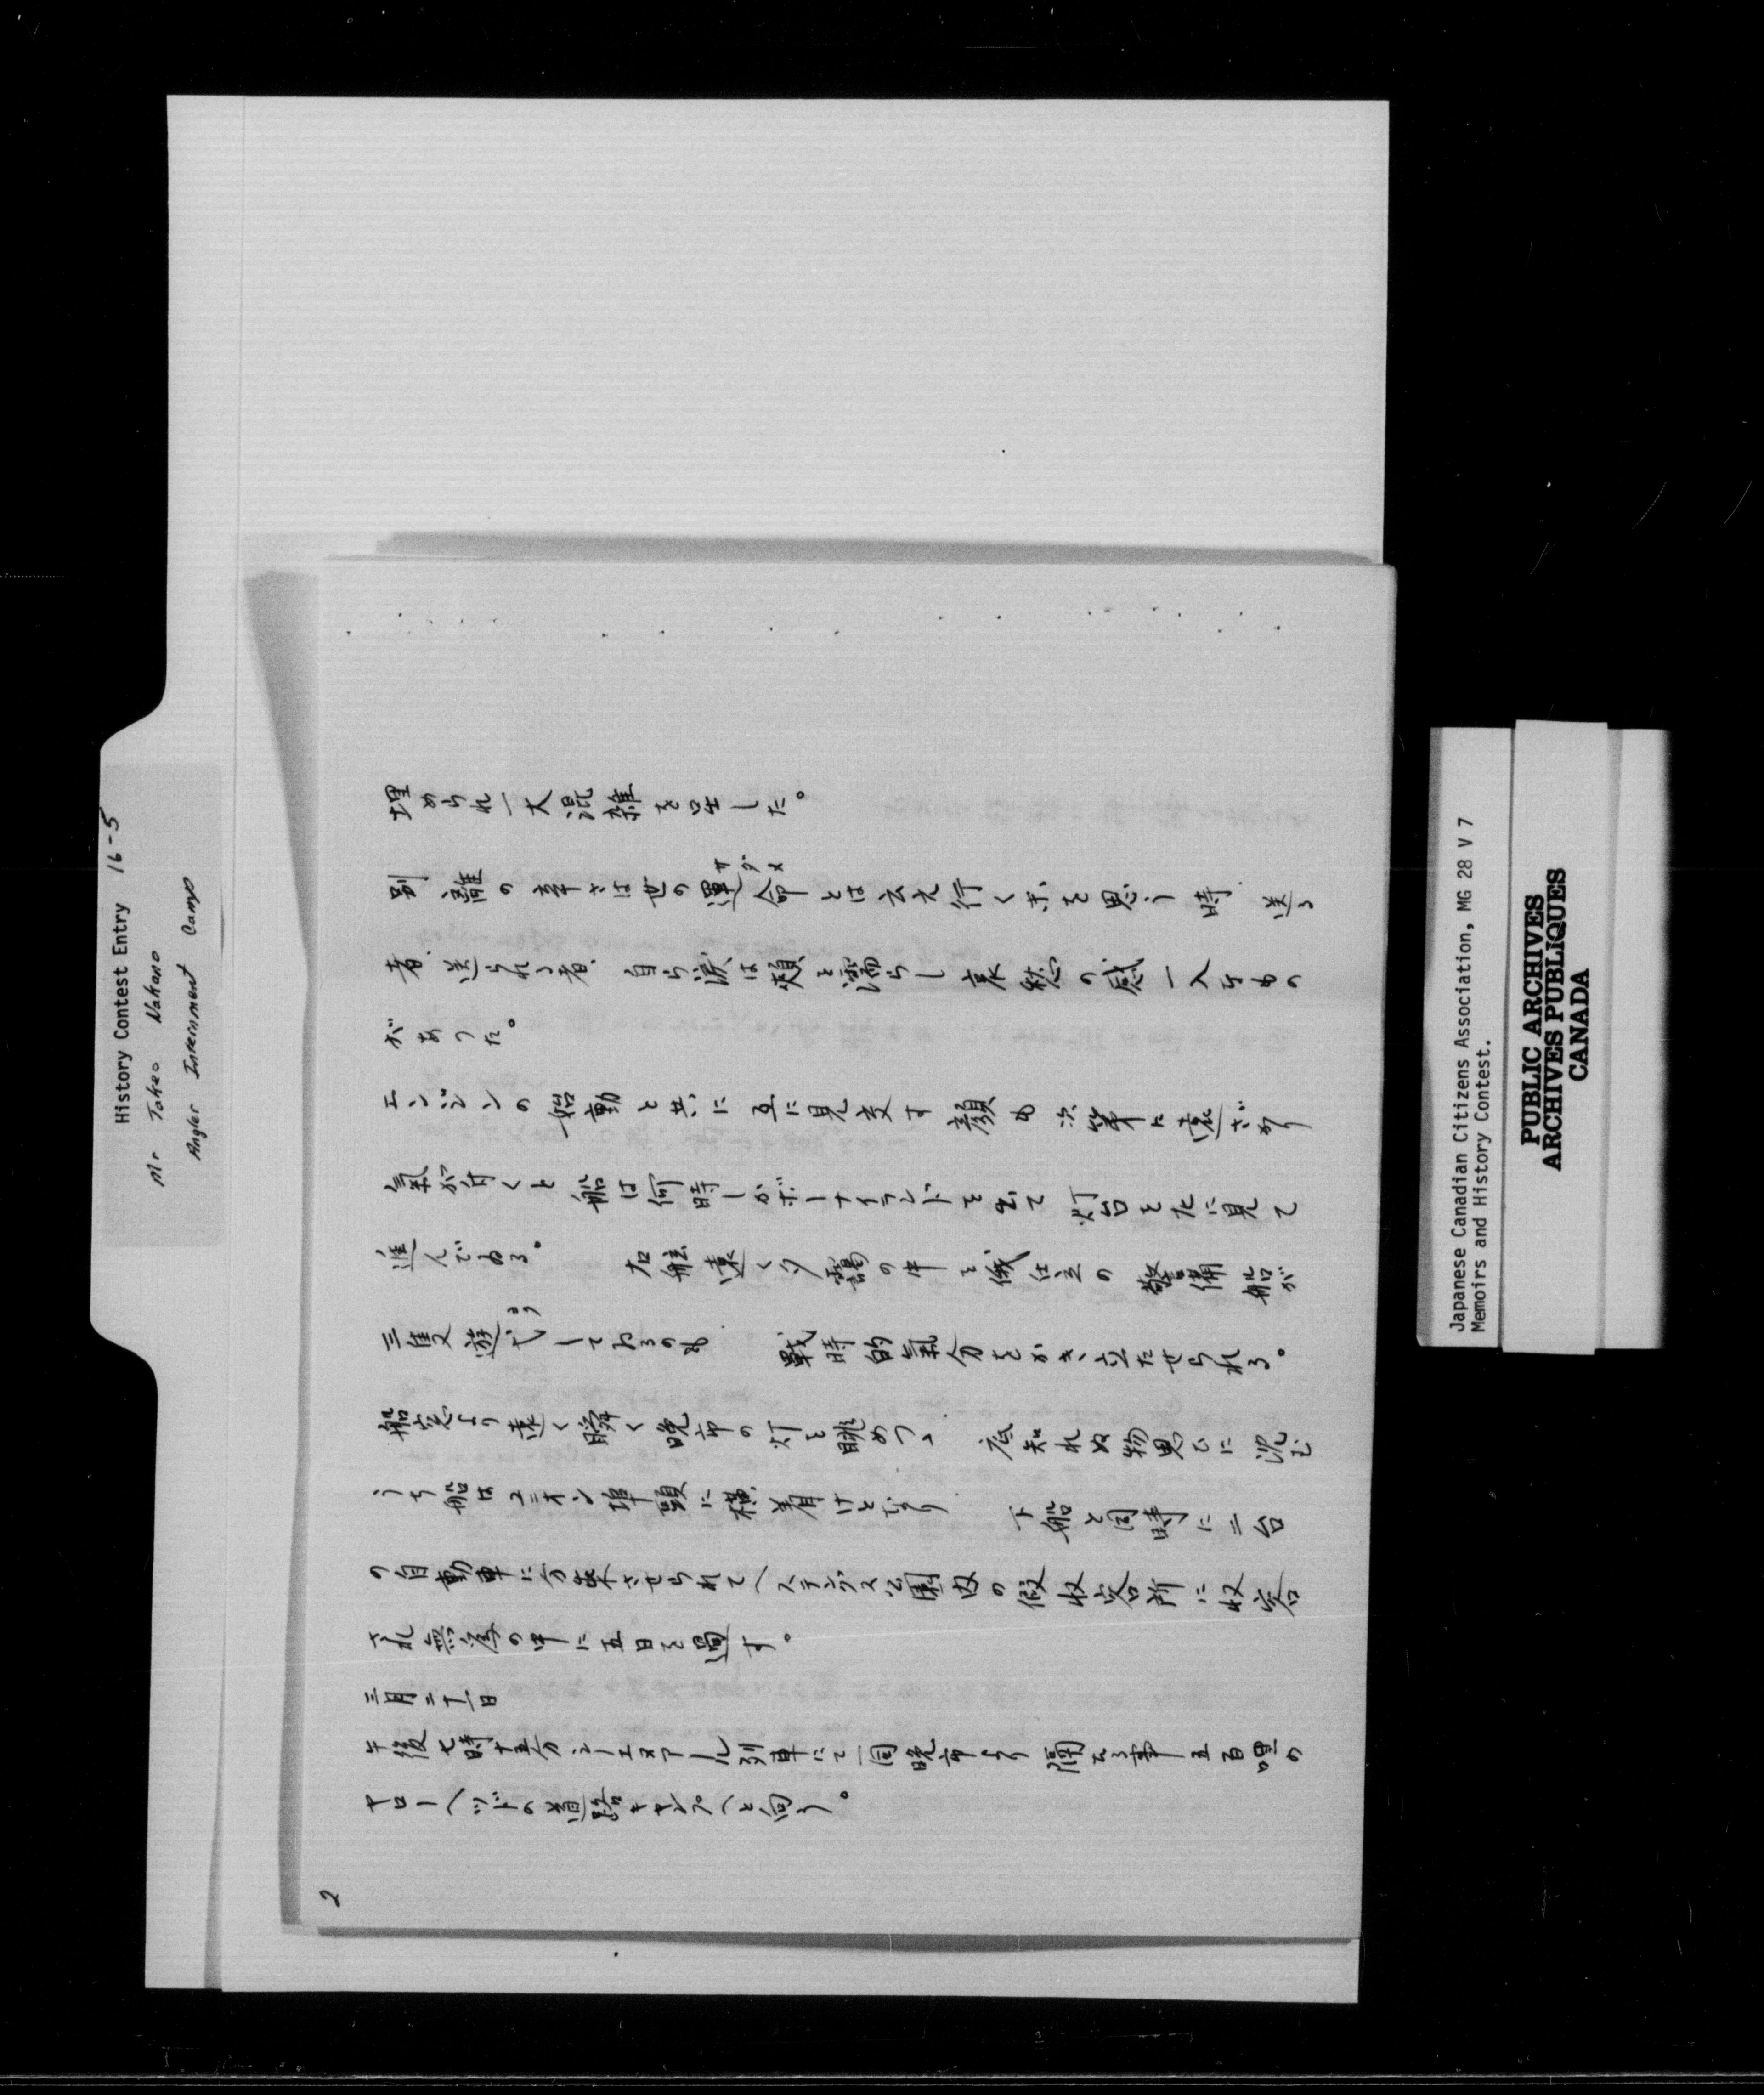 History Contest Entry 16-5
Mr Takeo Nakano
Angler Internment Camp
埋められ一大混雑を呈した。
別離の辛さは世の運命とは云え行く末を思う時 送る
サダメ
者、送られる者、自ら涙は頬を濡らし哀愁の感一入なもの
があった。
エンジンの始動と共に互に見交す顔も次第に遠ざかり
氣が付くと船は何時しかボーナイランドを出て灯台を左に見て
進んでゐる。 右舷遠く夕靄の中を俄仕立の警備船が
三隻遊弋しておるのも 戰時的氣分をかき立たせられる。
よく
船窓より遠く瞬く晩市の灯を眺めつゝ 底知れぬ物思ひに沈む
うち船はユニオン埠頭に横着けとなり 下船と同時に二台
の自動車に分乗させられてヘスチングス公園内の假收容所に收容
され無為の中に五日を過す。
三月二十一日
午後七時十五分シーエヌアール列車にて一同晩市より隔る事五百哩の
ヤローヘッドの道路キャンプへと向う。
2
Japanese Canadian Citizens Association, MG 28 V 7
Memoirs and History Contest.
PUBLIC ARCHIVES
ARCHIVES PUBLIQUES
CANADA